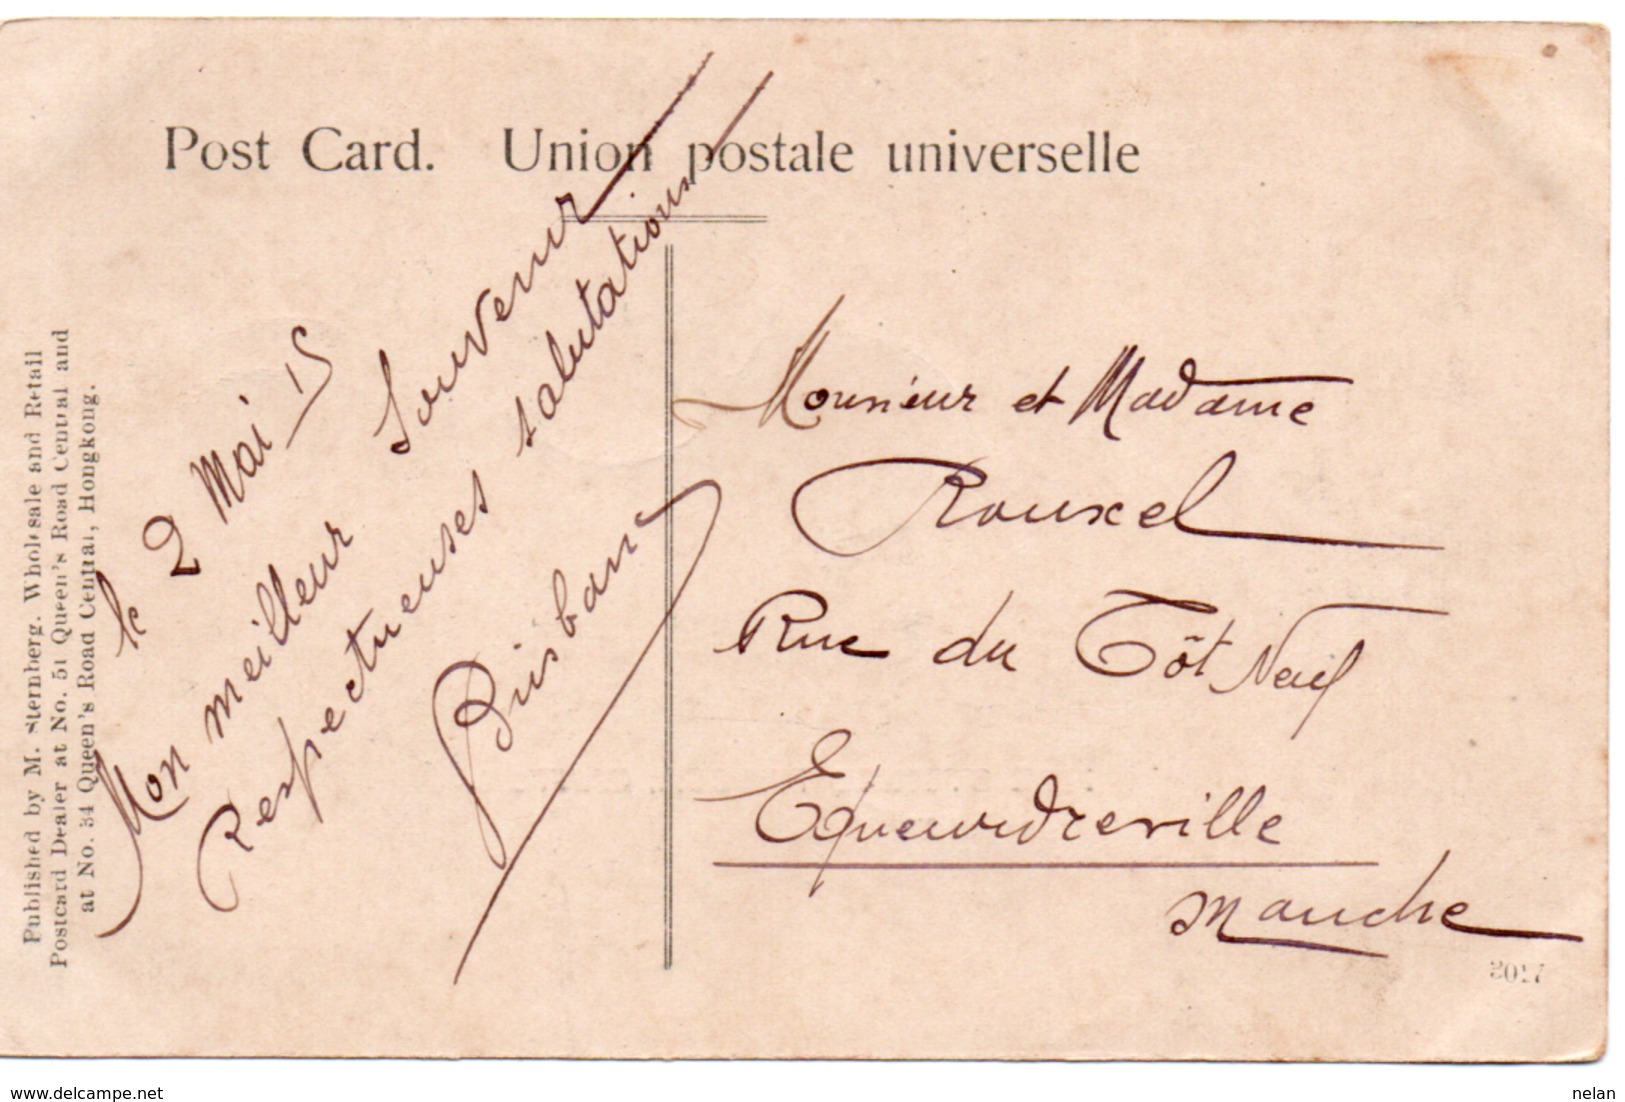 Post Card. Union postale universelle
Published by M. Sternberg. Wholesale and Retail
Postcard Dealer at No. 51 Queen's Road Central and
at No. 34 Queen's Road Central, Hongkong.
le 2 Mai 15
Mon meilleur Souvenir
Respectueuses salutations
Brisbane
Monsieur et Madame
Rouxel
Rue du Tôt Neuf
Equeurdreville
Manche
2017
www.delcampe.net
nelan